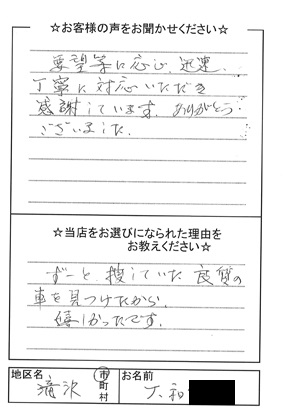 ☆お客様の声をお聞かせください☆
要望等に応じ、迅速、
丁寧に対応いただき
感謝しています。ありがとう
ございました。
☆当店をお選びになられた理由を
お教えください☆
ずーと探していた良質の
車を見つけたから、
嬉しかったです。
地区名 滝沢 市町村 お名前 大和